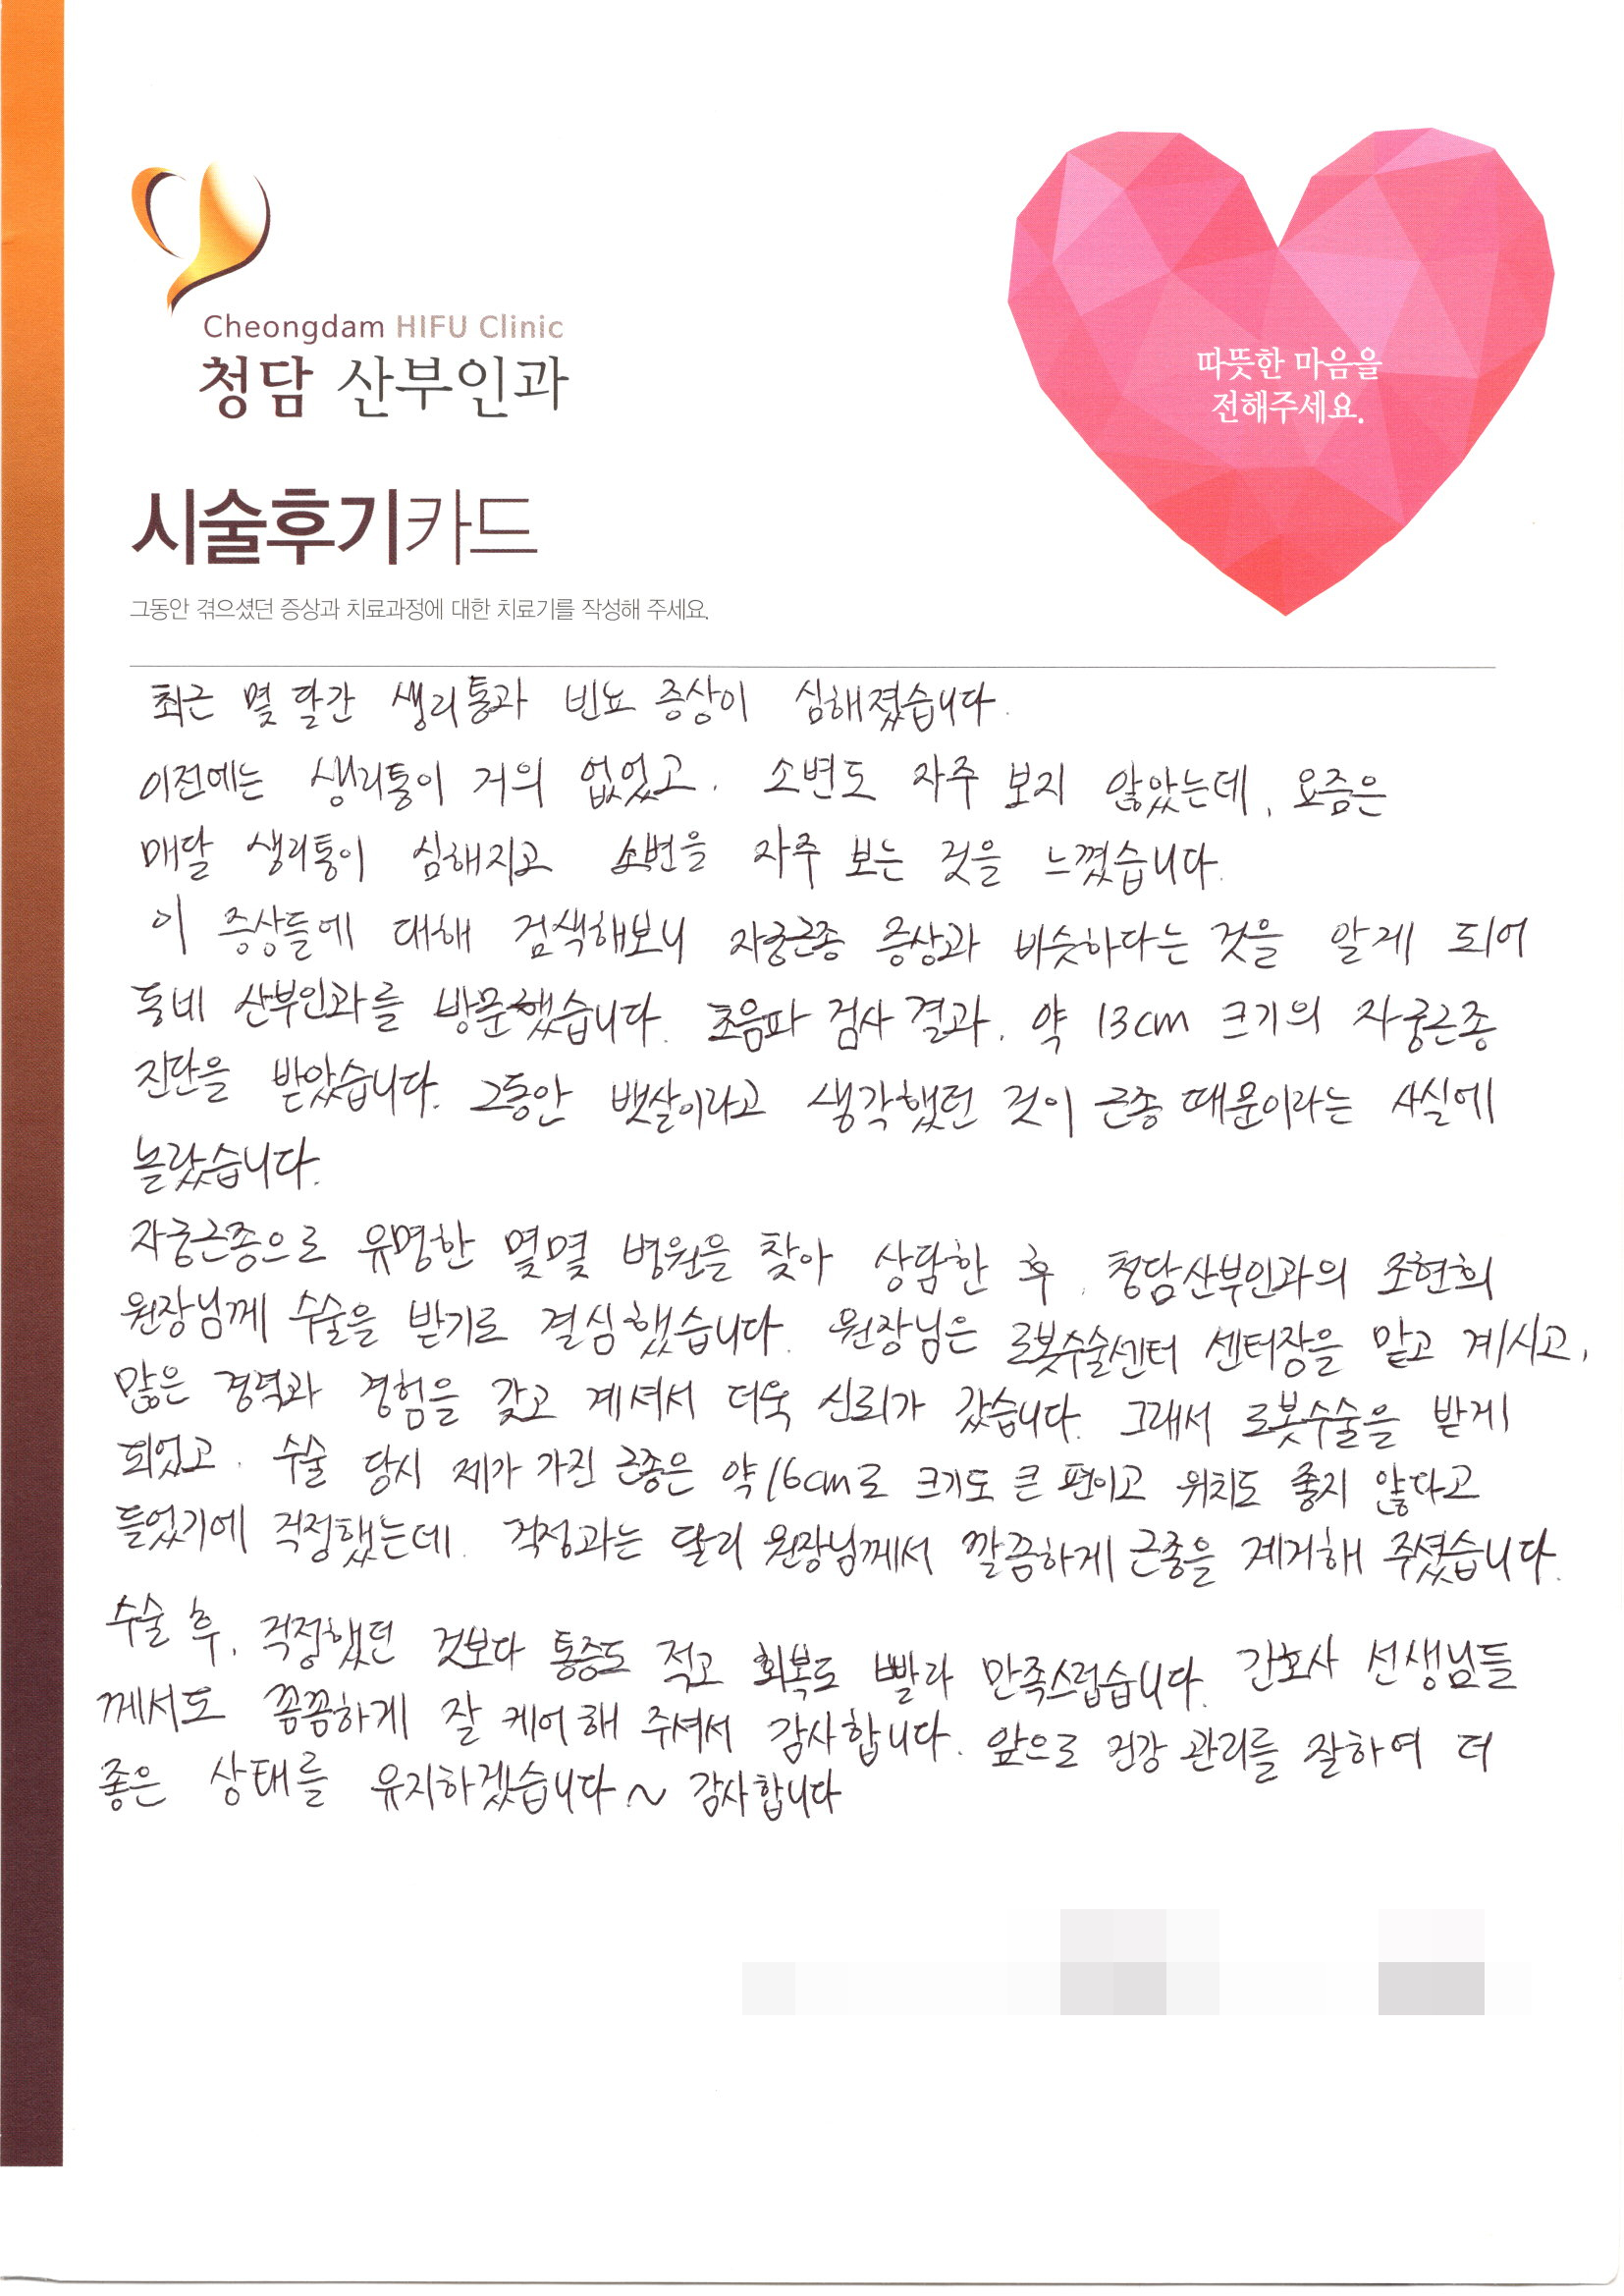 Cheongdam HIFU Clinic
청담 산부인과
따뜻한 마음을
전해주세요.
시술후기카드
그동안 겪으셨던 증상과 치료과정에 대한 치료기를 작성해 주세요.
최근 몇 달간 생리통과 빈뇨 증상이 심해졌습니다.
이전에는 생리통이 거의 없었고, 소변도 자주 보지 않았는데, 요즘은
매달 생리통이 심해지고 소변을 자주 보는 것을 느꼈습니다.
이 증상들에 대해 검색해보니 자궁근종 증상과 비슷하다는 것을 알게 되어
동네 산부인과를 방문했습니다. 초음파 검사 결과, 약 13cm 크기의 자궁근종
진단을 받았습니다. 그동안 뱃살이라고 생각했던 것이 근종 때문이라는 사실에
놀랐습니다.
자궁근종으로 유명한 몇몇 병원을 찾아 상담한 후, 청담산부인과의 조현희
원장님께 수술을 받기로 결심했습니다. 원장님은 로봇수술센터 센터장을 맡고 계시고,
많은 경력과 경험을 갖고 계셔서 더욱 신뢰가 갔습니다. 그래서 로봇수술을 받게
되었고, 수술 당시 제가 가진 근종은 약 16cm로 크기도 큰 편이고 위치도 좋지 않다고
들었기에 걱정했는데, 걱정과는 달리 원장님께서 깔끔하게 근종을 제거해 주셨습니다.
수술 후, 걱정했던 것보다 통증도 적고 회복도 빨라 만족스럽습니다. 간호사 선생님들
께서도 꼼꼼하게 잘 케어해 주셔서 감사합니다. 앞으로 건강 관리를 잘하여 더
좋은 상태를 유지하겠습니다~ 감사합니다